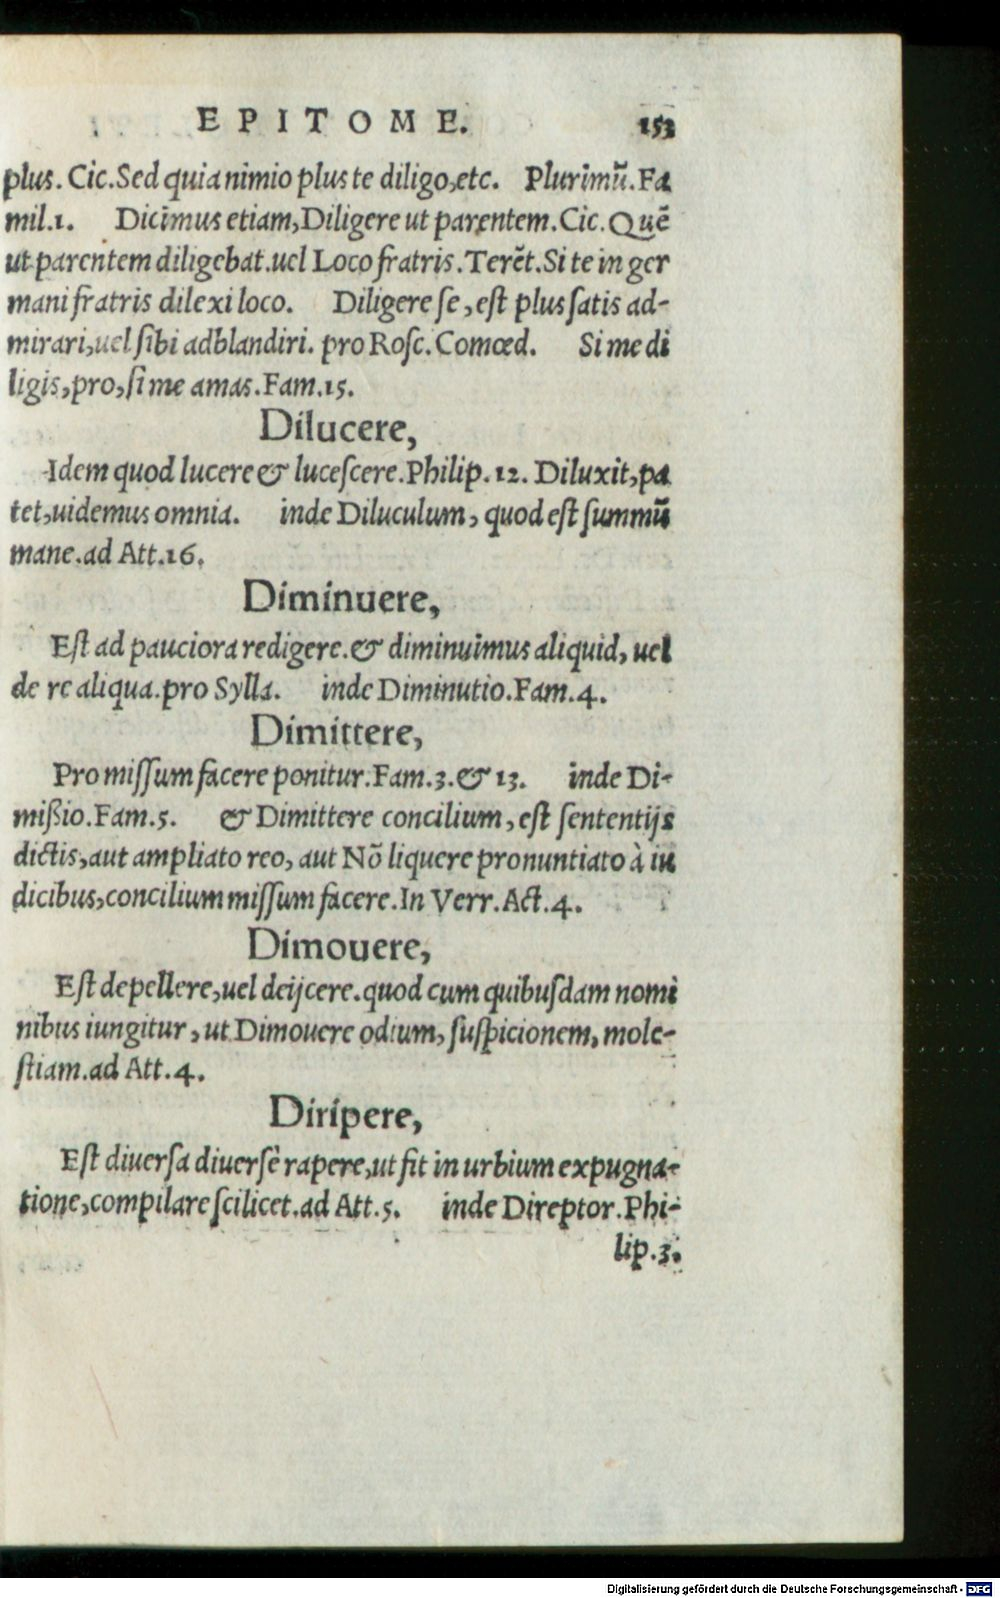 EPITOME. 153
plus. Cic. Sed quia nimio plus te diligo, etc. Plurimũ. Fa
mil.1. Dicimus etiam, Diligere ut parentem. Cic. Quẽ
ut parentem diligebat. uel Loco fratris. Terẽt. Si te in ger
mani fratris dilexi loco. Diligere se, est plus satis ad-
mirari, uel sibi adblandiri. pro Rosc. Comœd. Si me di
ligis, pro, si me amas. Fam.15.
Dilucere,
Idem quod lucere & lucescere. Philip.12. Diluxit, pa
tet, uidemus omnia. inde Diluculum, quod est summũ
mane. ad Att.16.
Diminuere,
Est ad pauciora redigere. & diminuimus aliquid, uel
de re aliqua. pro Sylla. inde Diminutio. Fam.4.
Dimittere,
Pro missum facere ponitur. Fam.3. & 13. inde Di-
mißio. Fam.5. & Dimittere concilium, est sententijs
dictis, aut ampliato reo, aut Nõ liquere pronuntiato à iu
dicibus, concilium missum facere. In Verr. Act.4.
Dimouere,
Est depellere, uel deijcere. quod cum quibusdam nomi
nibus iungitur, ut Dimouere odium, suspicionem, mole-
stiam. ad Att.4.
Diripere,
Est diuersa diuersè rapere, ut fit in urbium expugna-
tione, compilare scilicet. ad Att.5. inde Direptor. Phi-
lip.3.
Digitalisierung gefördert durch die Deutsche Forschungsgemeinschaft - DFG